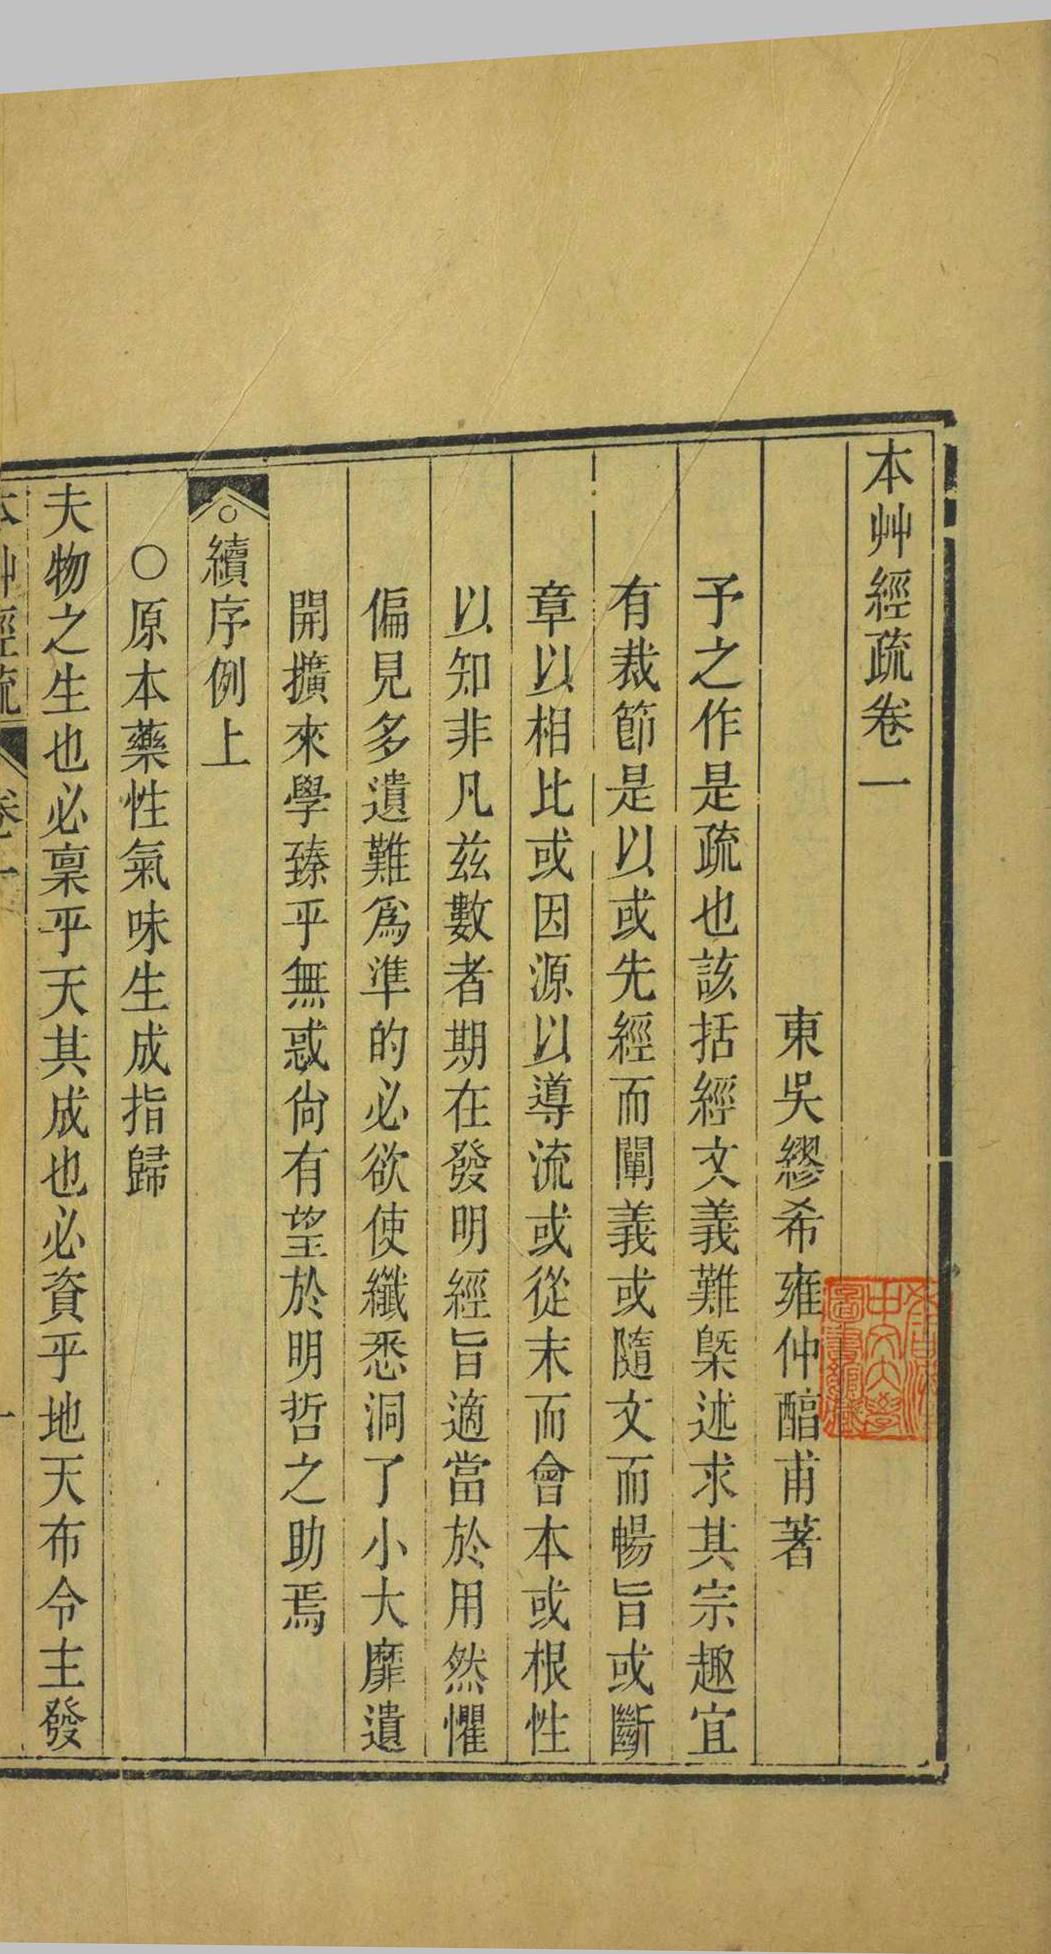 本艸經疏卷一
東吳繆希雍仲醕甫著
予之作是疏也該括經文義難槩述求其宗趣宜
有裁節是以或先經而闡義或隨文而暢旨或斷
章以相比或因源以導流或從末而會本或根性
以知非凡茲數者期在發明經旨適當於用然懼
偏見多遺難爲準的必欲使纖悉洞了小大靡遺
開擴來學臻乎無惑尙有望於明哲之助焉
○續序例上
○原本藥性氣味生成指歸
夫物之生也必稟乎天其成也必資乎地天布令主發
本艸經疏 卷一 一